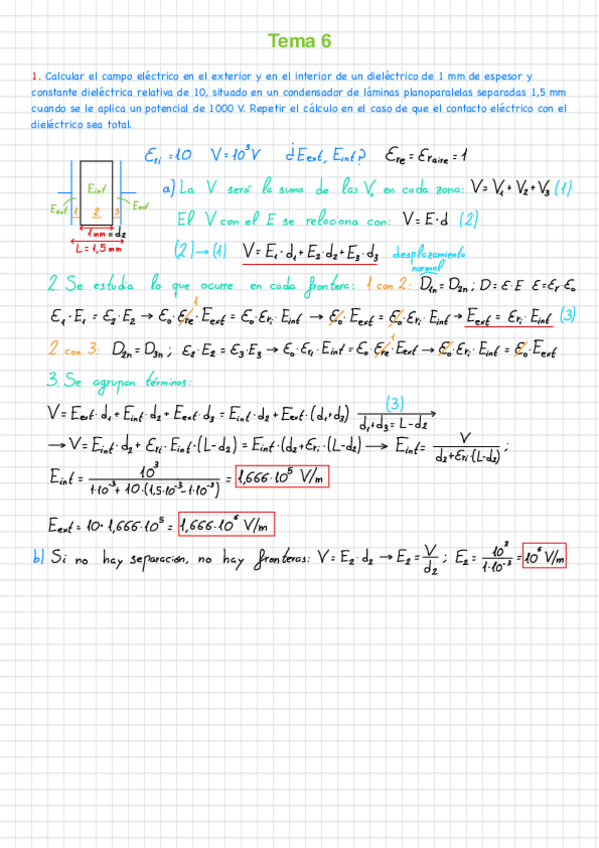 Tema 6
1. Calcular el campo eléctrico en el exterior y en el interior de un dieléctrico de 1 mm de espesor y
constante dieléctrica relativa de 10, situado en un condensador de láminas planoparalelas separadas 1,5 mm
cuando se le aplica un potencial de 1000 V. Repetir el cálculo en el caso de que el contacto eléctrico con el
dieléctrico sea total.
Ɛri = 10 V = 10³V ¿Eext, Eint? Ɛre = Ɛraire = 1
Eint
Eext 1 2 3 Eext
1mm = d2
L = 1,5 mm
a) La V será la suma de las Vn en cada zona: V = V1 + V2 + V3 (1)
El V con el E se relaciona con: V = E·d (2)
(2)→(1) V = E1·d1 + E2·d2 + E3·d3 desplazamiento
normal
2. Se estudia lo que ocurre en cada frontera: 1 con 2: D1n = D2n ; D = Ɛ·E Ɛ = Ɛr·Ɛo
1
Ɛ1·E1 = Ɛ2·E2 → Ɛo·Ɛre·Eext = Ɛo·Ɛri·Eint → Ɛo·Eext = Ɛo·Ɛri·Eint → Eext = Ɛri·Eint (3)
2 con 3: D2n = D3n ; Ɛ2·E2 = Ɛ3·E3 → Ɛo·Ɛri·Eint = Ɛo·Ɛre·Eext → Ɛo·Ɛri·Eint = Ɛo·Eext
1
3. Se agrupan términos:
V = Eext·d1 + Eint·d2 + Eext·d3 = Eint·d2 + Eext·(d1+d3) (3) d1+d3 = L-d2 →
→ V = Eint·d2 + Ɛri·Eint·(L-d2) = Eint·(d2+Ɛri·(L-d2)) → Eint = V / d2+Ɛri·(L-d2) ;
Eint = 10³ / 1·10⁻³ + 10·(1,5·10⁻³ - 1·10⁻³) = 1,666·10⁵ V/m
Eext = 10·1,666·10⁵ = 1,666·10⁶ V/m
b) Si no hay separación, no hay fronteras: V = E2·d2 → E2 = V / d2 ; E2 = 10³ / 1·10⁻³ = 10⁶ V/m